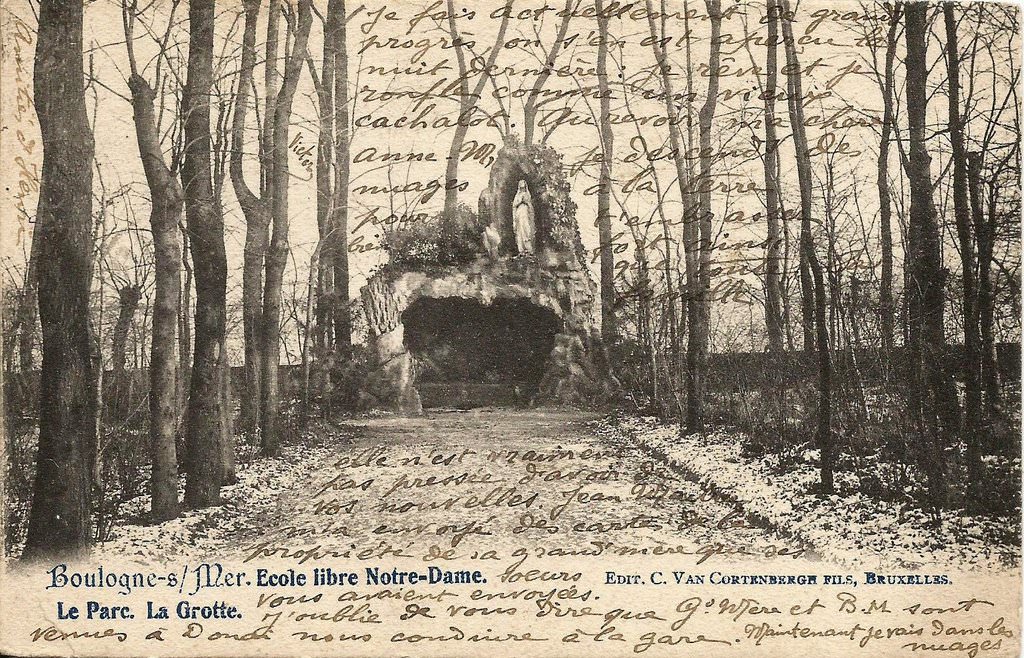 Je fais actuellement de grands
progrès on s'en est aperçu la
nuit dernière. Je rêve et je
ronfle comme un vieux
cachalot. Au revoir ma chère
Anne. M. je descends des
nuages à la terre
pour t'embrasser
bien fort ainsi
que
elle n'est vraiment
pas pressée d'avoir de
vos nouvelles Jean
m'a envoyé des cartes de la
propriété de sa grand'mère que ses
Boulogne-s/Mer. Ecole libre Notre-Dame.
soeurs
EDIT. C. VAN CORTENBERGH FILS, BRUXELLES.
Le Parc. La Grotte.
vous avaient envoyées.
J'oublie de vous dire que Gd Mère et B.M sont
venues à Douai nous conduire à la gare. Maintenant je vais dans les
nuages